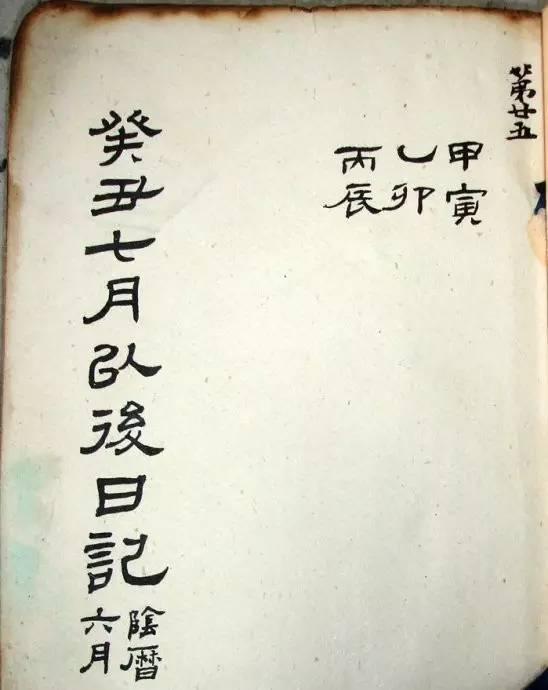 第廿五
甲寅
乙卯
丙辰
癸丑七月以後日記
陰曆
六月